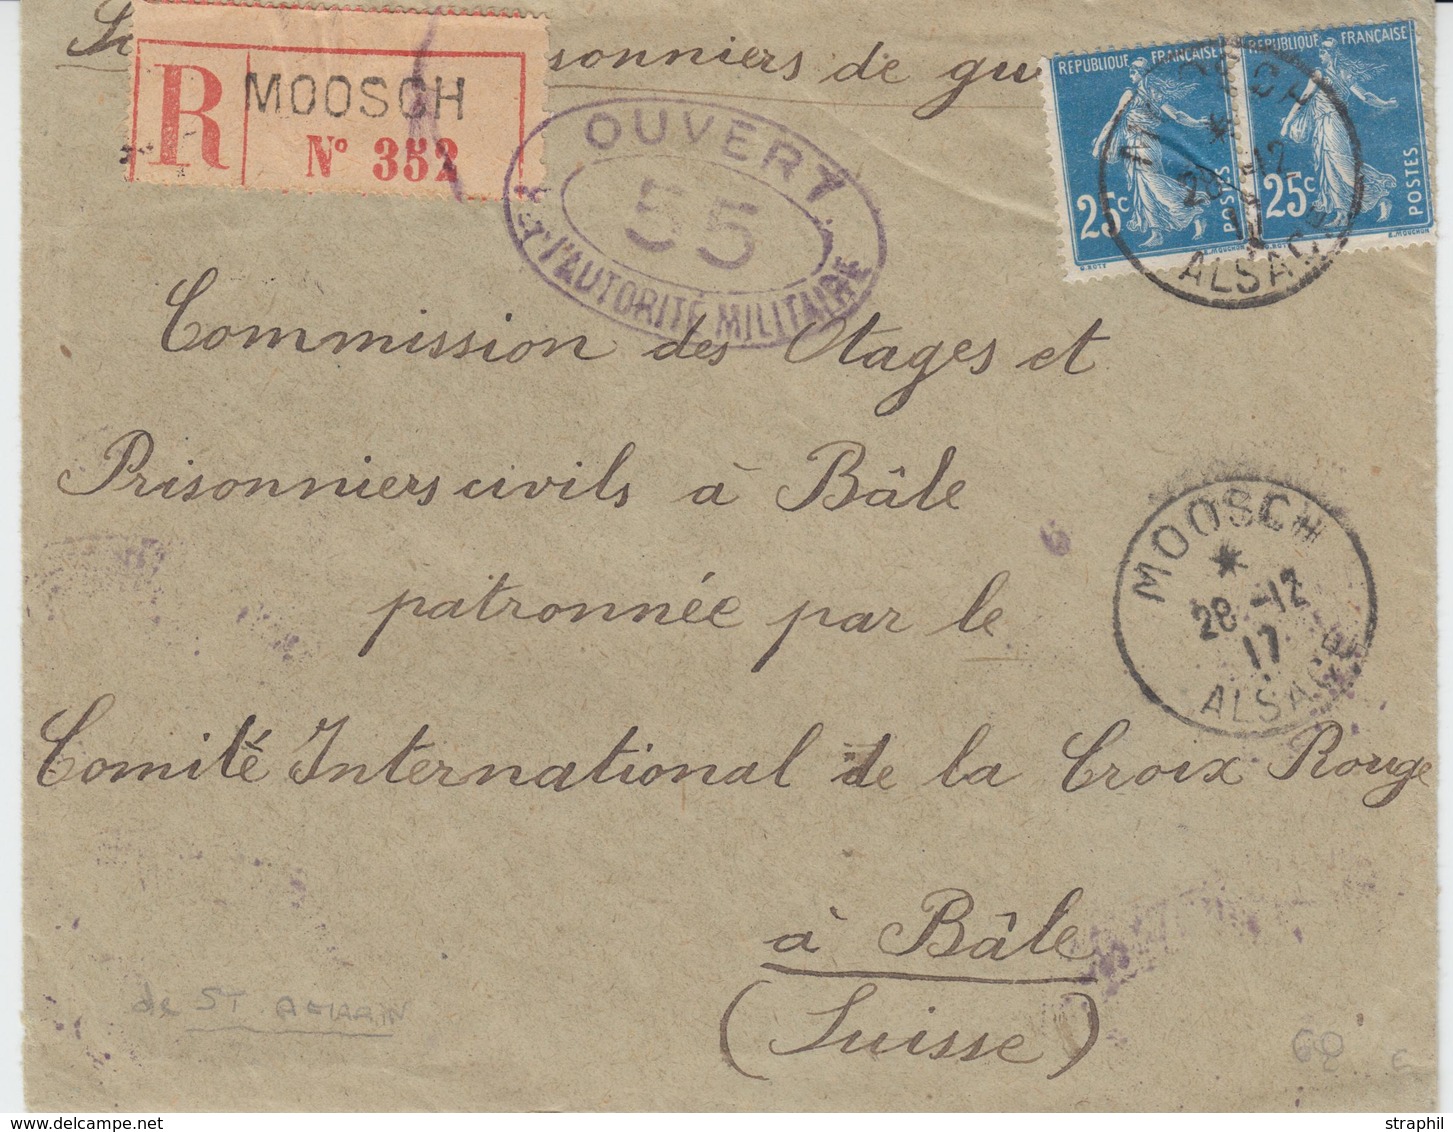 sonniers de
R MOOSCH
N° 352
OUVERT
55
L'AUTORITÉ MILITAIRE
REPUBLIQUE FRANÇAISE
25c
POSTES
REPUBLIQUE FRANÇAISE
25c
POSTES
28-12
17
ALSACE
Commission des Otages et
Prisonniers civils à Bâle
patronnée par le
MOOSCH
28-12
17
ALSACE
Comité International de la Croix Rouge
à Bâle
(Suisse)
de ST AMARIN
60 €
straphil